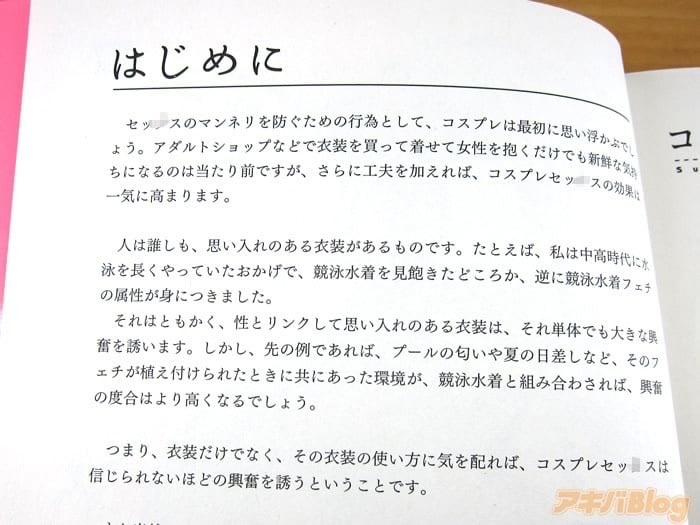 はじめに
セッ スのマンネリを防ぐための行為として、コスプレは最初に思い浮かぶでし
ょう。アダルトショップなどで衣装を買って着せて女性を抱くだけでも新鮮な気持
ちになるのは当たり前ですが、さらに工夫を加えれば、コスプレセッ スの効果は
一気に高まります。
人は誰しも、思い入れのある衣装があるものです。たとえば、私は中高時代に水
泳を長くやっていたおかげで、競泳水着を見飽きたどころか、逆に競泳水着フェチ
の属性が身につきました。
それはともかく、性とリンクして思い入れのある衣装は、それ単体でも大きな興
奮を誘います。しかし、先の例であれば、プールの匂いや夏の日差しなど、そのフ
ェチが植え付けられたときに共にあった環境が、競泳水着と組み合わされば、興奮
の度合はより高くなるでしょう。
つまり、衣装だけでなく、その衣装の使い方に気を配れば、コスプレセッ スは
信じられないほどの興奮を誘うということです。
コ
Su
アキバBlog